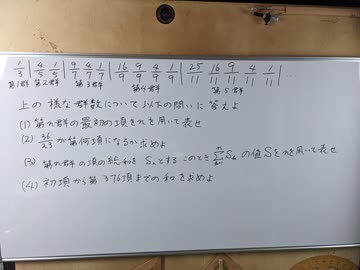 1/3 | 4/5 1/5 | 9/7 4/7 1/7 | 16/9 9/9 4/9 1/9 | 25/11 16/11 9/11 4/11 1/11 | …
第1群 第2群 第3群 第4群 第5群
上の様な群数について以下の問いに答えよ
(1) 第n群の最初の項をnを用いて表せ
(2) 36/23が第何項になるか求め
(3) 第n群の項の総和をSnとする このとき Σ Sk の値Sをnを用いて表せ
(4) 初項から第376項までの和を求めよ